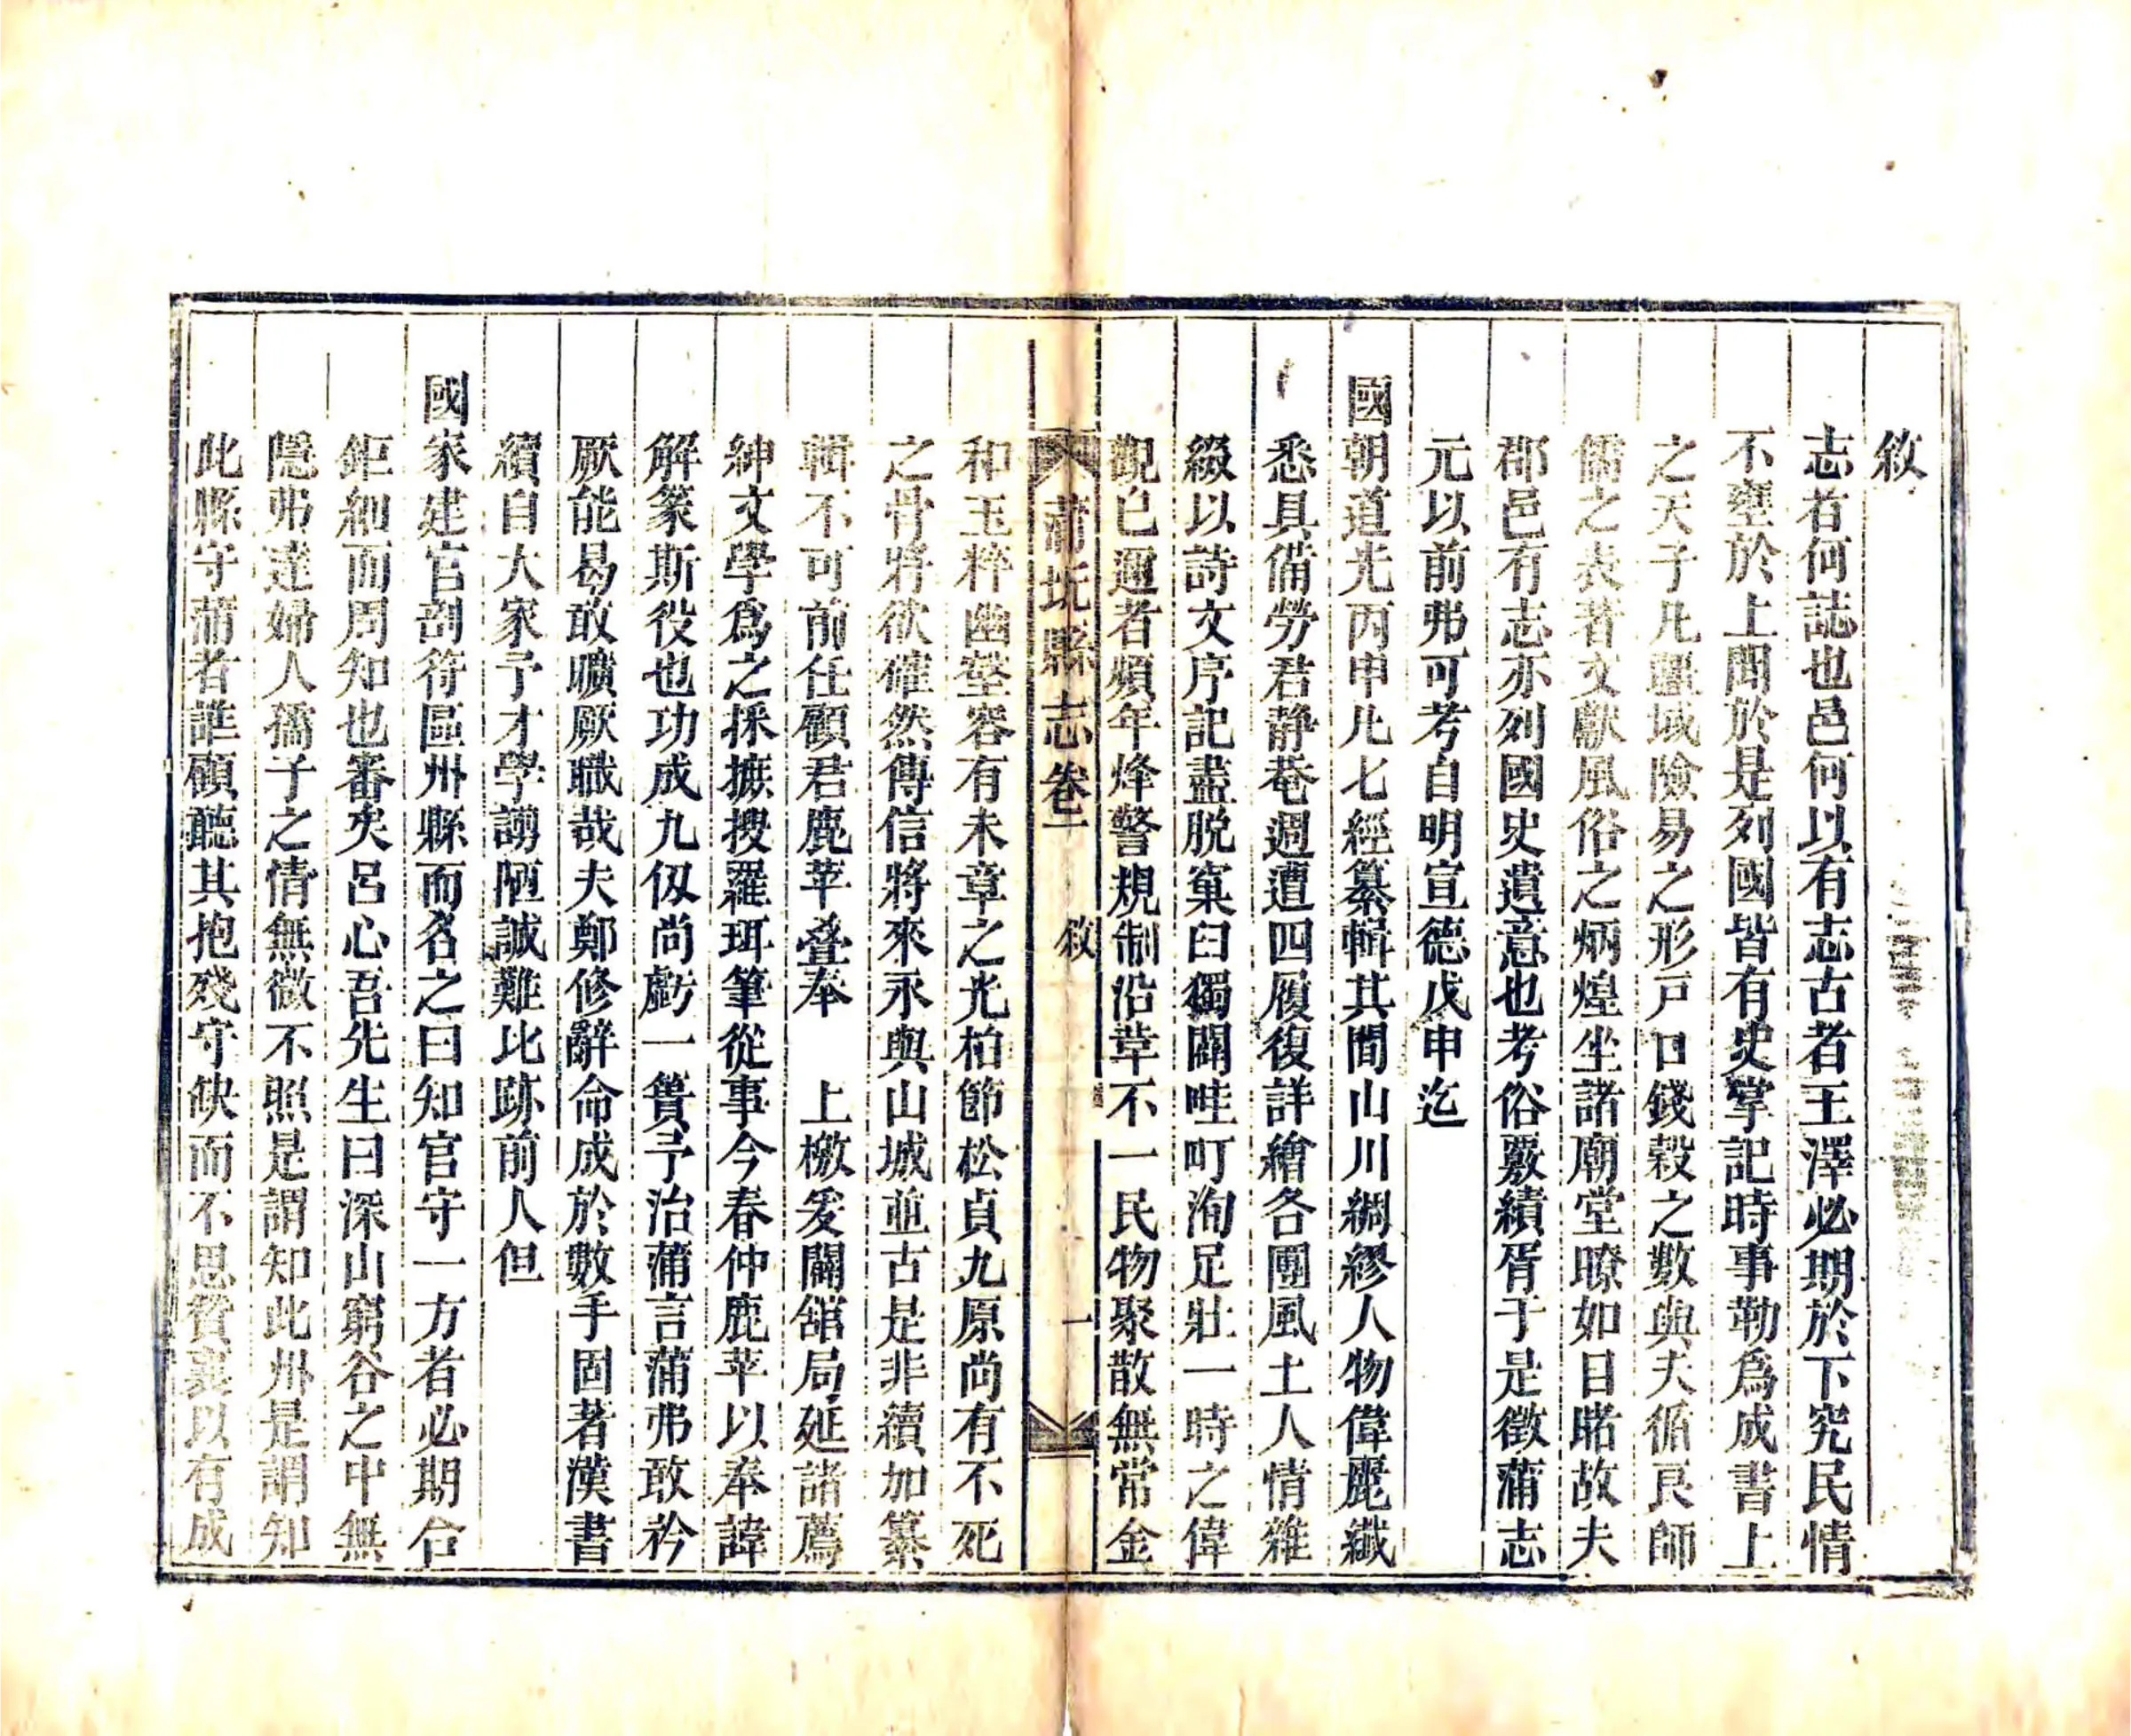 敘
志者何誌也邑何以有志古者王澤必期於下究民情
不壅於上聞於是列國皆有史掌記時事勒爲成書上
之天子凡疆域險易之形戸口錢穀之數與夫循良師
儒之表著文獻風俗之炳煌坐諸廟堂暸如日睹故夫
郡邑有志亦列國史遺意也考俗覈績胥于是徵蒲志
元以前弗可考自明宣德戊申迄
國朝道光丙申凡七經纂輯其間山川綢繆人物偉麗纖
悉具備勞君靜菴週遭四履復詳繪各團風土人情雜
綴以詩文序記盡脱窠臼獨闢畦町洵足壯一時之偉
觀已邇者頻年烽警規制沿革不一民物聚散無常金
蒲圻縣志卷一 敘 一
和玉粹幽壑容有未章之光柏節松貞九原尚有不死
之骨將欲確然傳信將來永與山城並古是非續加纂
輯不可前任顧君鹿苹叠奉 上檄爰闢舘局延諸薦
紳文學爲之採摭搜羅珥筆從事今春仲鹿苹以奉諱
解篆斯役也功成九仭尚虧一簣予治蒲言蒲弗敢矜
厥能曷敢曠厥職哉夫鄭修辭命成於數手固著漢書
續自大家予才學謭陋誠難比跡前人但
國家建官剖符區州縣而名之曰知官守一方者必期合
鉅細而周知也審矣呂心吾先生曰深山窮谷之中無
隱弗達婦人孺子之情無微不照是謂知此州是謂知
此縣守蒲者誰顧聽其抱殘守缺而不思贊襄以有成